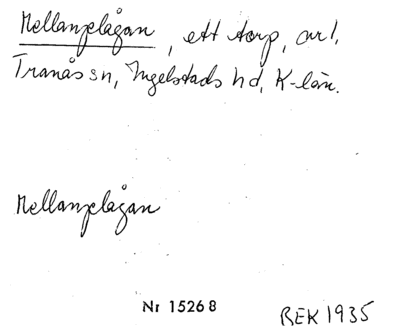 Mellanplågan, ett torp, avl,
Tranås sn, Ingelstads hd, K-län.
Mellanplågan
Nr 15268
BEK 1935